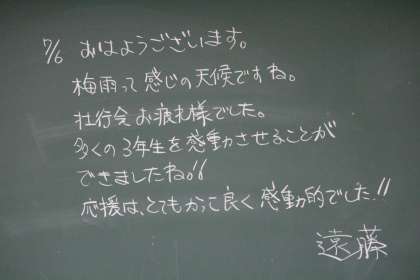 7/6 おはようございます。
梅雨って感じの天候ですね。
壮行会お疲れ様でした。
多くの3年生を感動させることが
できましたね!!
応援は、とてもかっこ良く感動的でした!!
遠藤